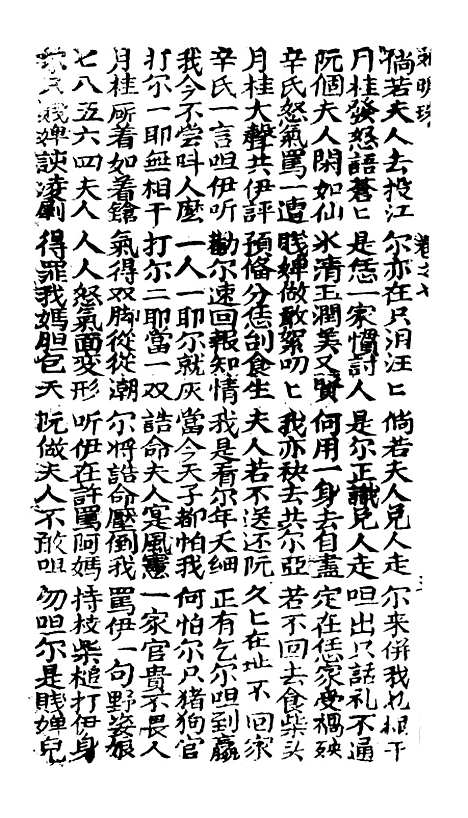 明珠 卷之七
倘若夫人去投江 尔亦在只泪汪匕 倘若夫人兄人走 尔来併我也根干
月桂發怒語蒼匕 是恁一家慣討人 是尔正識兄人走 呾出只話礼不通
阮個夫人閑如仙 氷清玉潤美又賢 何用一身去自盡 定在恁家受禍殃
辛氏怒氣罵一遭 賤婢做敢絮叨匕 我亦秧去共尔亞 若不回去食柴头
月桂大聲共伊評 預俻分恁刣食生 夫人若不送还阮 久匕在址不回家
辛氏一言呾伊听 勸尔速回報知情 我是看尔年夭细 正有乞尔呾到贏
我今不嘗呌人麼 一人一耶尔就灰 當今天子都怕我 何怕尔只猪狗官
打尔一耶無相干 打尔二耶當一双 誥命夫人寔風憲 一家官貴不畏人
月桂㕔着如着鎗 氣得双脚從從潮 尔将誥命壓倒我 罵伊一句野姿娘
七八五六四夫人 人人怒氣面変形 听伊在許罵阿媽 持枝柴槌打伊身
尔只賤婢凌 得罪我媽胆包天 阮做夫人不敢呾 勿呾尔是賤婢兒